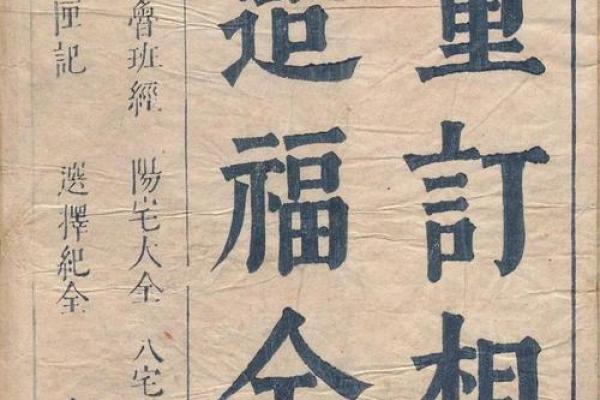 重訂相
造福全
魯班經 陽宅大全 八宅
匣記 選擇紀全